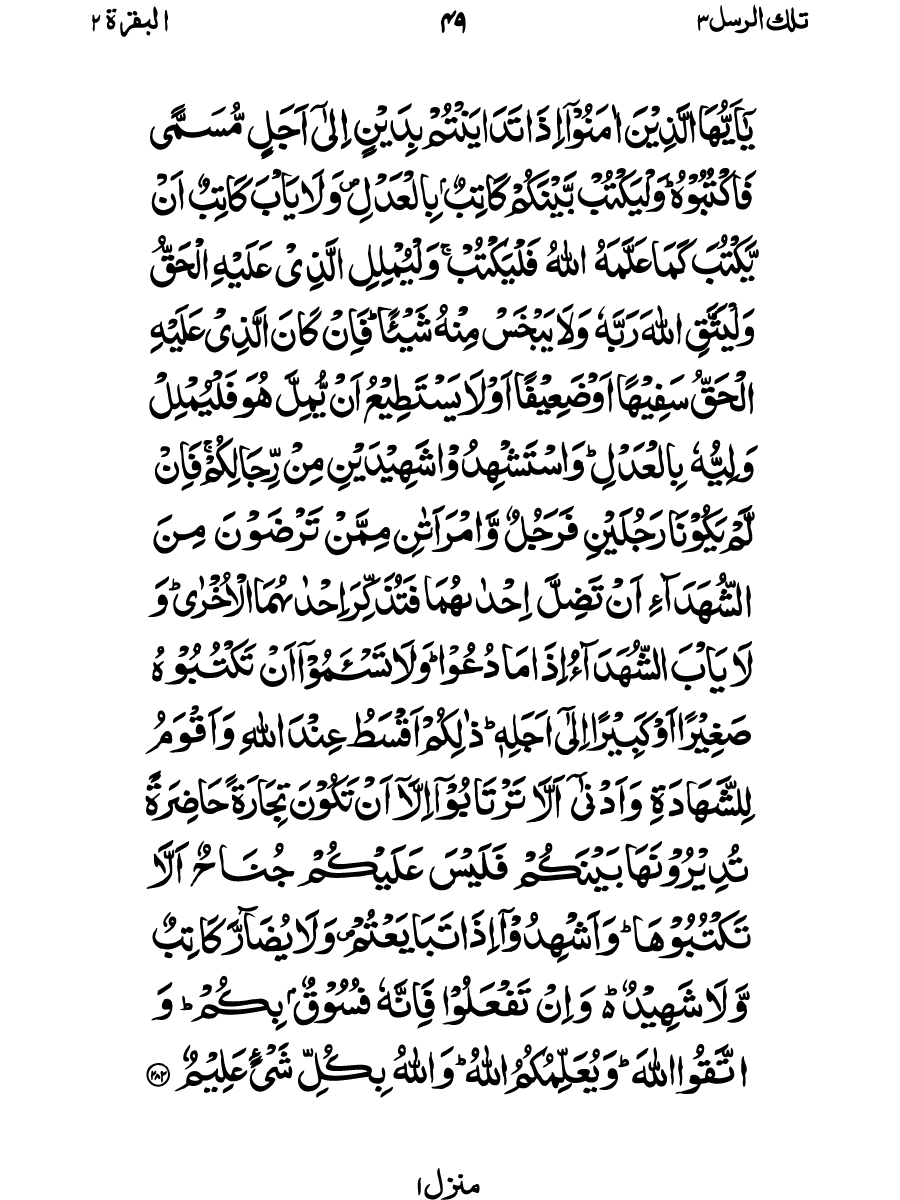 تلك الرسل ٣
٤٩
البقرة ٢
يٰۤاَيُّهَا الَّذِيْنَ اٰمَنُوْۤا اِذَا تَدَايَنْتُمْ بِدَيْنٍ اِلٰۤى اَجَلٍ مُّسَمًّى
فَاكْتُبُوْهُ ؕ وَلْيَكْتُبْ بَّيْنَكُمْ كَاتِبٌۢ بِالْعَدْلِ ۪ وَلَا يَاْبَ كَاتِبٌ اَنْ
يَّكْتُبَ كَمَا عَلَّمَهُ اللّٰهُ فَلْيَكْتُبْ ۚ وَلْيُمْلِلِ الَّذِيْ عَلَيْهِ الْحَقُّ
وَلْيَتَّقِ اللّٰهَ رَبَّهٗ وَلَا يَبْخَسْ مِنْهُ شَيْـًٔا ؕ فَاِنْ كَانَ الَّذِيْ عَلَيْهِ
الْحَقُّ سَفِيْهًا اَوْ ضَعِيْفًا اَوْ لَا يَسْتَطِيْعُ اَنْ يُّمِلَّ هُوَ فَلْيُمْلِلْ
وَلِيُّهٗ بِالْعَدْلِ ؕ وَاسْتَشْهِدُوْا شَهِيْدَيْنِ مِنْ رِّجَالِكُمْ ۚ فَاِنْ
لَّمْ يَكُوْنَا رَجُلَيْنِ فَرَجُلٌ وَّامْرَاَتٰنِ مِمَّنْ تَرْضَوْنَ مِنَ
الشُّهَدَآءِ اَنْ تَضِلَّ اِحْدٰىهُمَا فَتُذَكِّرَ اِحْدٰىهُمَا الْاُخْرٰى ؕ وَ
لَا يَاْبَ الشُّهَدَآءُ اِذَا مَا دُعُوْا ؕ وَلَا تَسْـَٔمُوْۤا اَنْ تَكْتُبُوْهُ
صَغِيْرًا اَوْ كَبِيْرًا اِلٰۤى اَجَلِهٖ ؕ ذٰلِكُمْ اَقْسَطُ عِنْدَ اللّٰهِ وَاَقْوَمُ
لِلشَّهَادَةِ وَاَدْنٰۤى اَلَّا تَرْتَابُوْۤا اِلَّاۤ اَنْ تَكُوْنَ تِجَارَةً حَاضِرَةً
تُدِيْرُوْنَهَا بَيْنَكُمْ فَلَيْسَ عَلَيْكُمْ جُنَاحٌ اَلَّا
تَكْتُبُوْهَا ؕ وَاَشْهِدُوْۤا اِذَا تَبَايَعْتُمْ ۪ وَلَا يُضَآرَّ كَاتِبٌ
وَّلَا شَهِيْدٌ ۬ؕ وَاِنْ تَفْعَلُوْا فَاِنَّهٗ فُسُوْقٌۢ بِكُمْ ؕ وَ
اتَّقُوا اللّٰهَ ؕ وَيُعَلِّمُكُمُ اللّٰهُ ؕ وَاللّٰهُ بِكُلِّ شَيْءٍ عَلِيْمٌ ۝٢٨٢
منزل ١